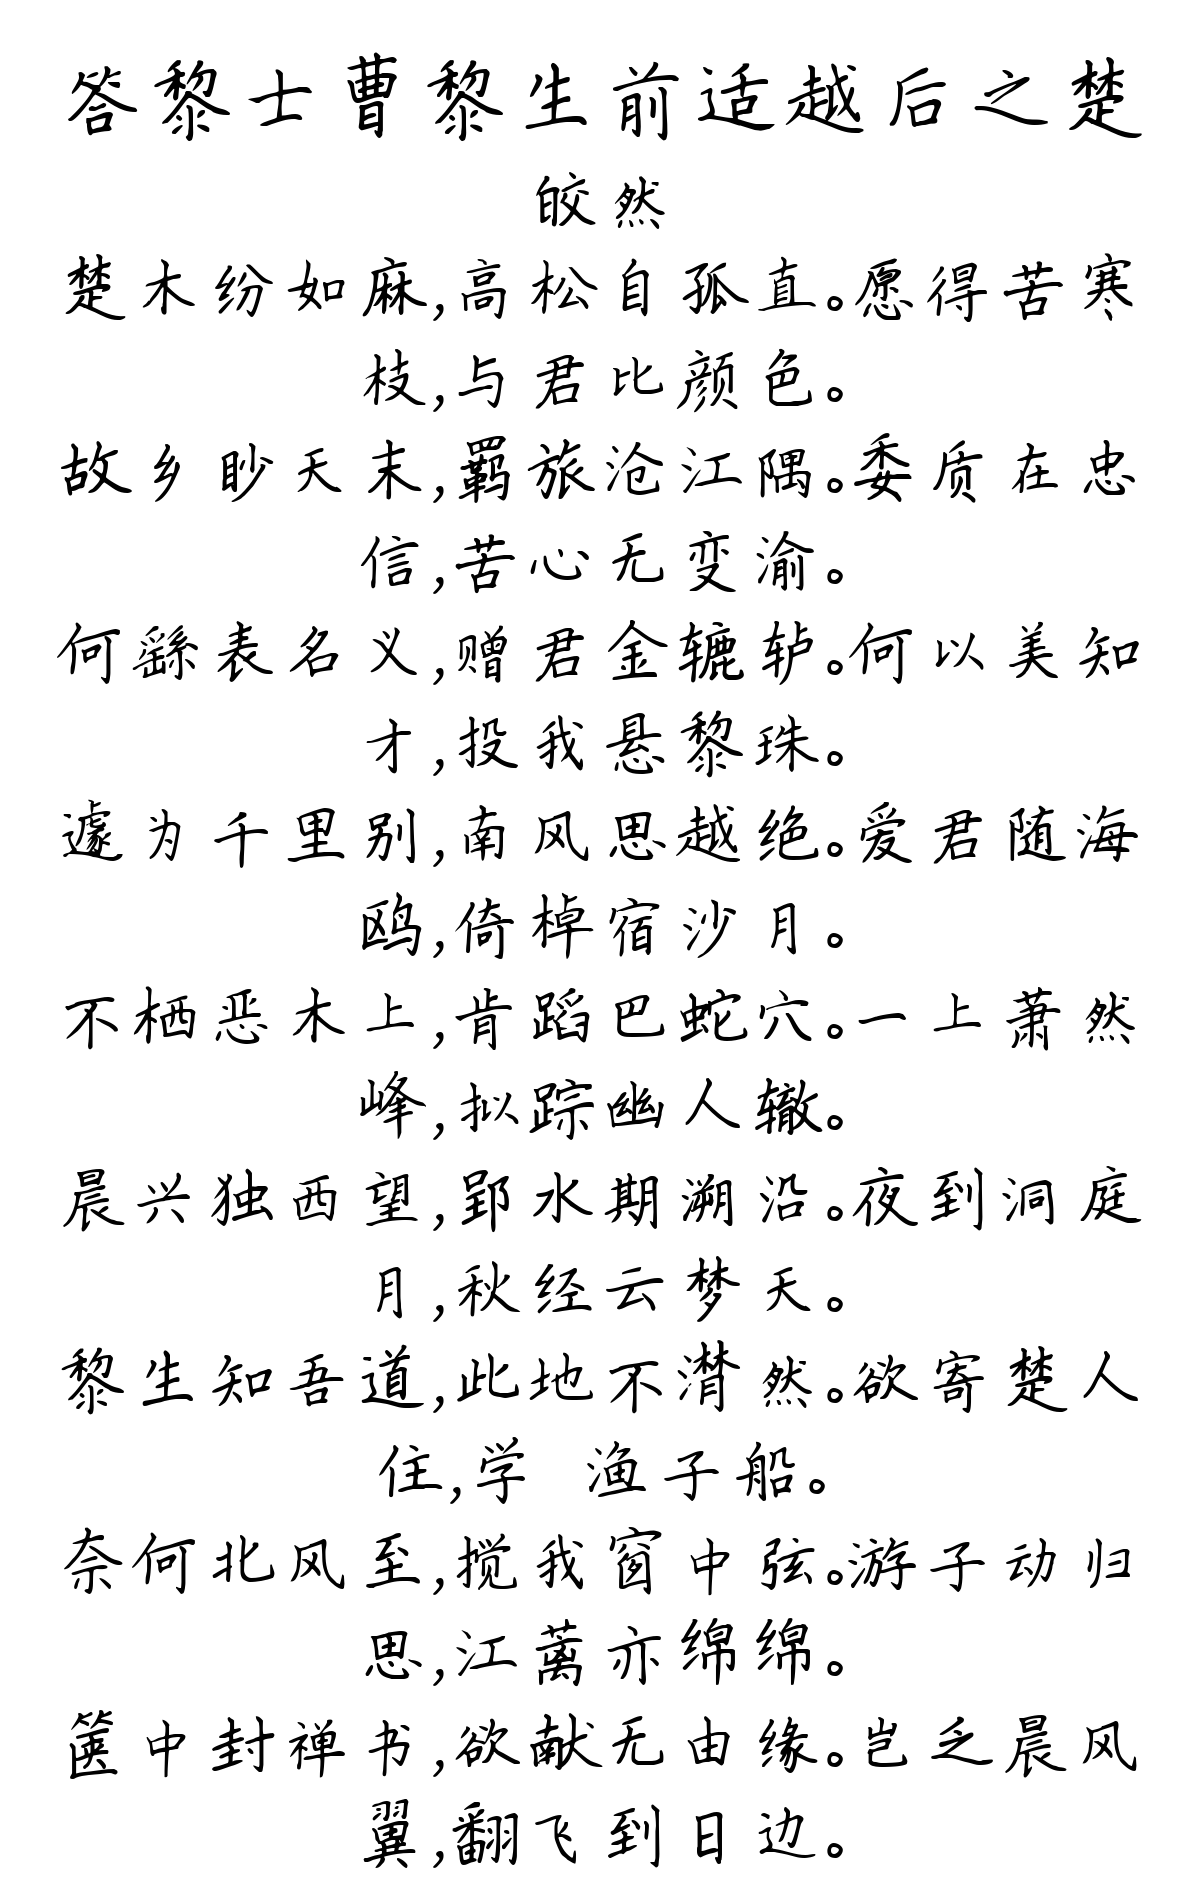 答黎士曹黎生前适越后之楚
皎然
楚木纷如麻,高松自孤直。愿得苦寒
枝,与君比颜色。
故乡眇天末,羁旅沧江隅。委质在忠
信,苦心无变渝。
何繇表名义,赠君金辘轳。何以美知
才,投我悬黎珠。
遽为千里别,南风思越绝。爱君随海
鸥,倚棹宿沙月。
不栖恶木上,肯蹈巴蛇穴。一上萧然
峰,拟踪幽人辙。
晨兴独西望,郢水期溯沿。夜到洞庭
月,秋经云梦天。
黎生知吾道,此地不潸然。欲寄楚人
住,学 渔子船。
奈何北风至,搅我窗中弦。游子动归
思,江蓠亦绵绵。
箧中封禅书,欲献无由缘。岂乏晨风
翼,翻飞到日边。